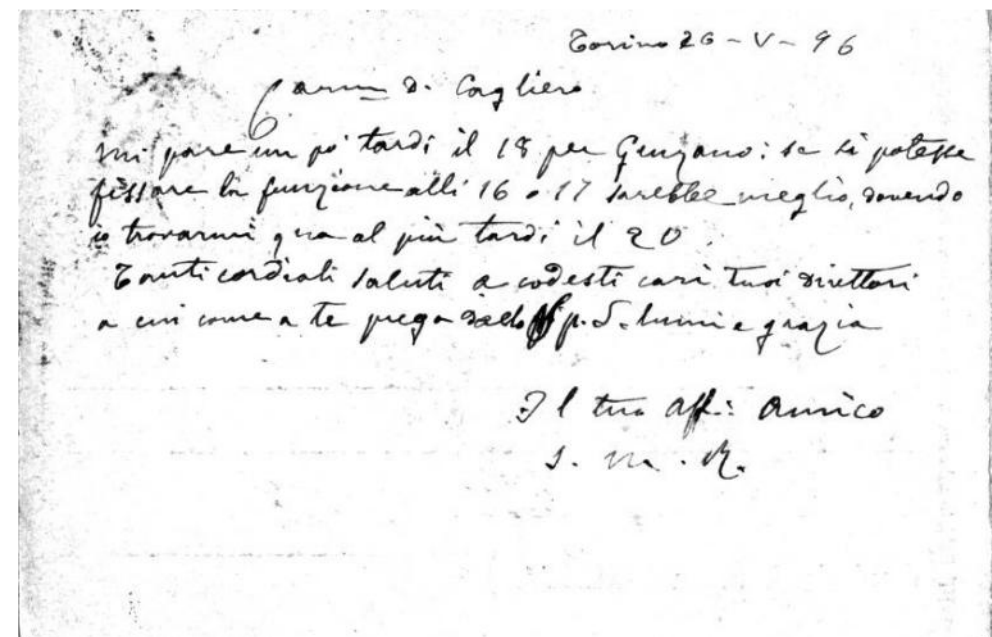 Torino 26 - V - 96
Carmo D. Cagliero
mi pare un pò tardi il 18 per Genzano: se si potesse
fissare la funzione alli 16 o 17 sarebbe meglio, dovendo
io trovarmi qua al più tardi il 20.
Tanti cordiali saluti a codesti cari tuoi direttori
a cui come a te prega dallo p. S. lumi e grazia
Il tuo aff. Amico
S. M. R.